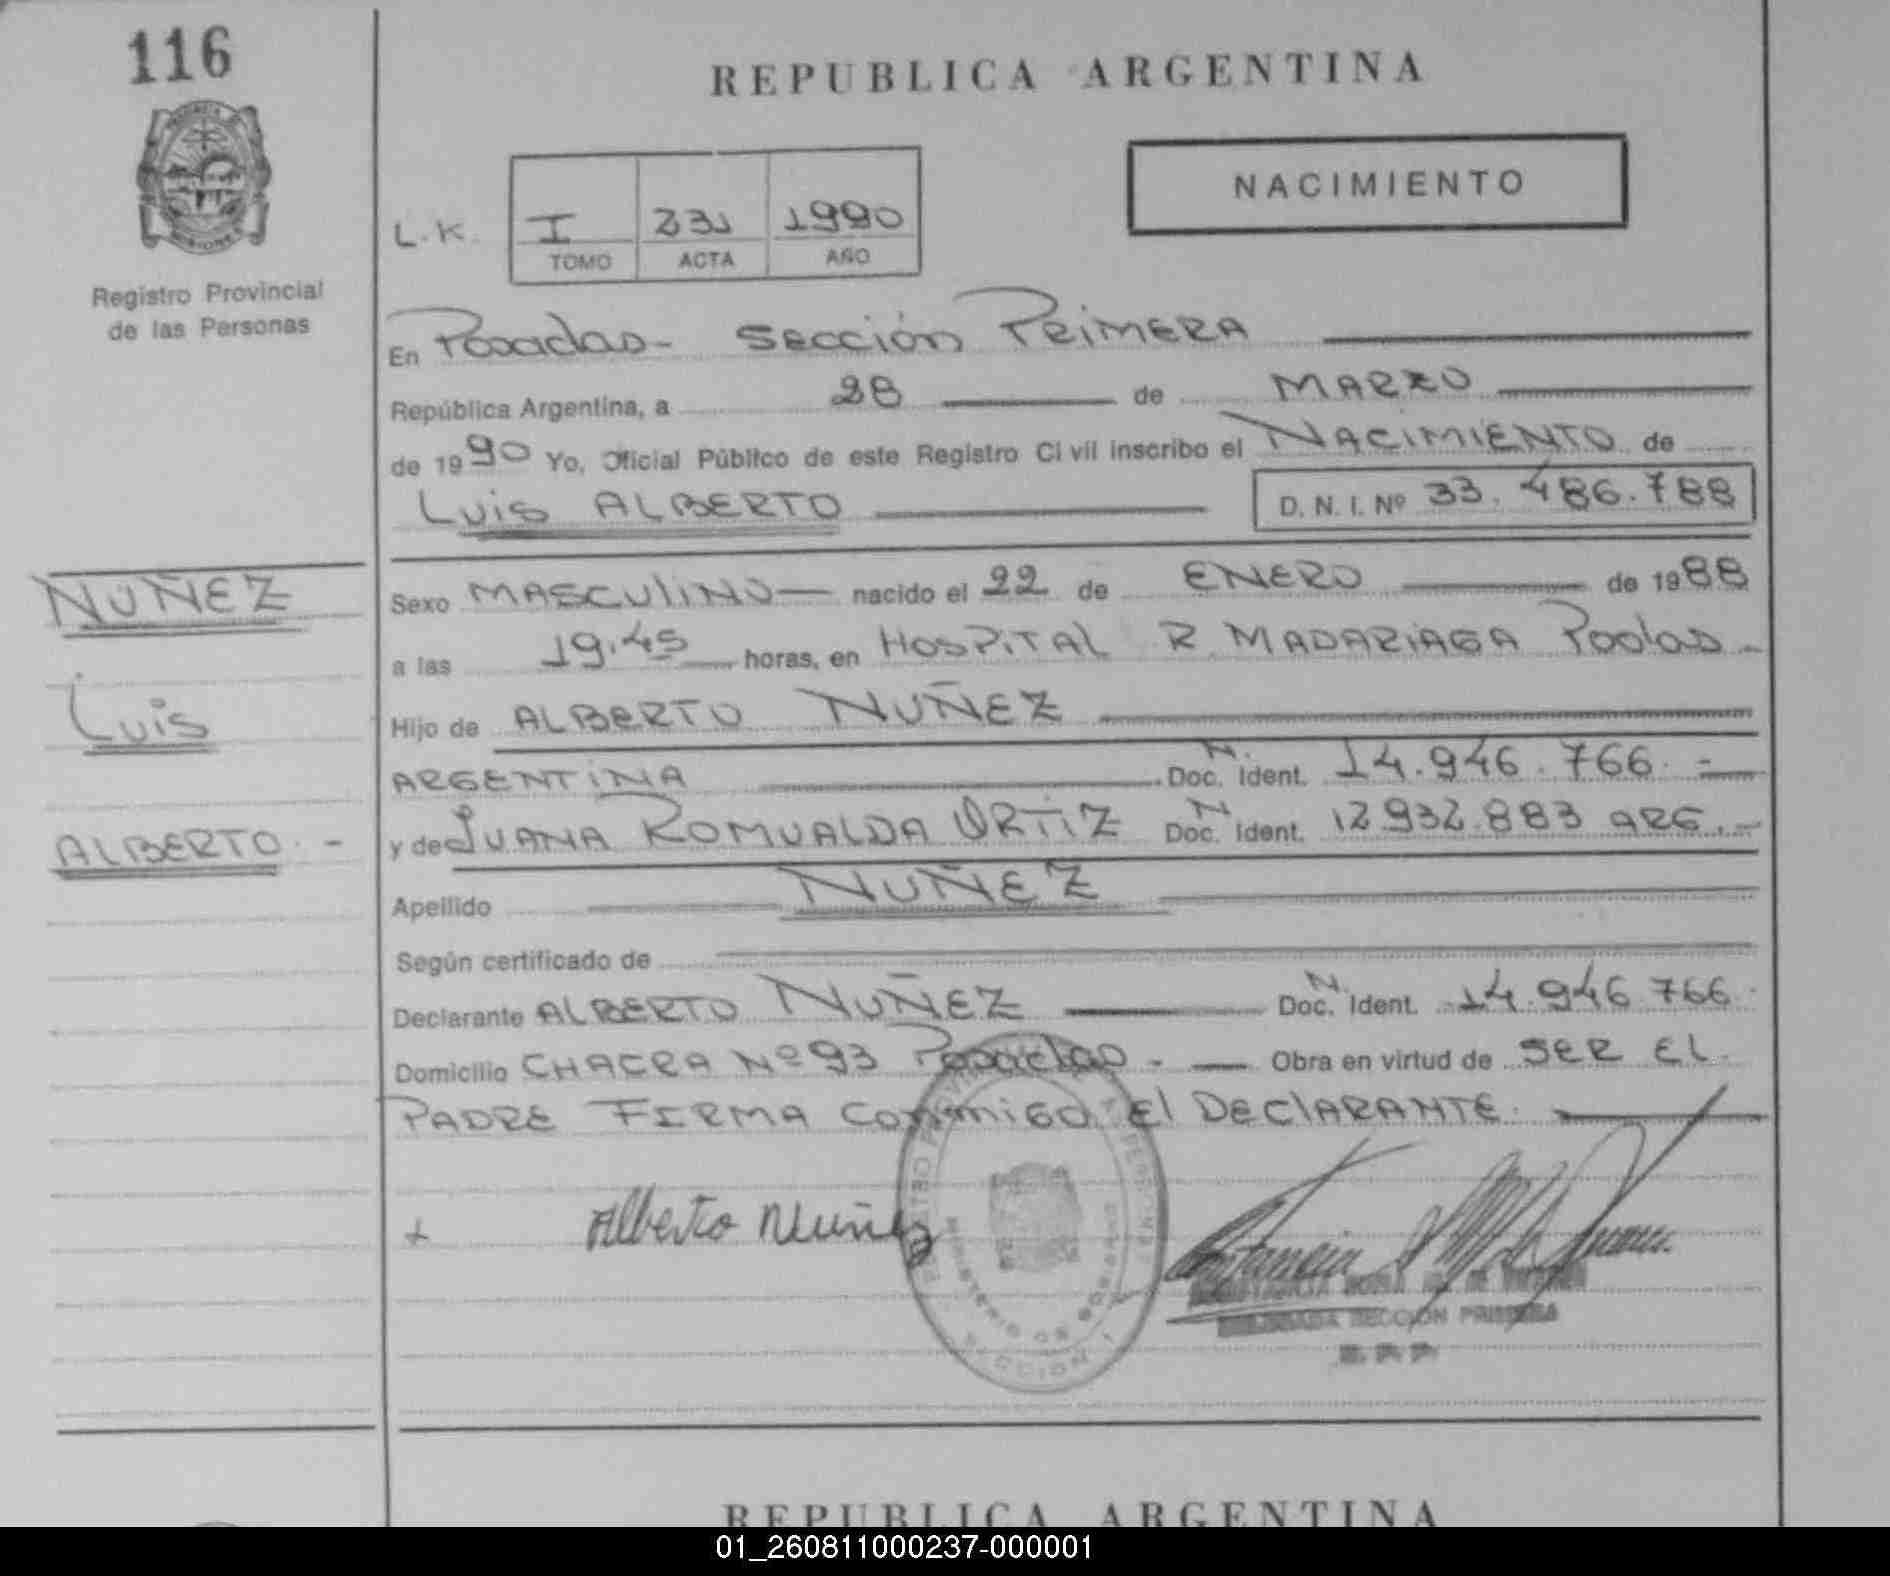 116
REPUBLICA ARGENTINA
NACIMIENTO
L.K. I 231 1990
TOMO ACTA AÑO
Registro Provincial
de las Personas
En Posadas- Sección Primera
República Argentina, a 28 de MARZO
de 1990 Yo, Oficial Público de este Registro Civil inscribo el NACIMIENTO de
Luis ALBERTO D. N. I. Nº 33.486.788
NUÑEZ
Luis
ALBERTO.-
Sexo MASCULINO nacido el 22 de ENERO de 1988
a las 19.45 horas, en HOSPITAL R. MADARIAGA Podas-
Hijo de ALBERTO NUÑEZ
ARGENTINA N. Doc. Ident. 14.946.766.-
y de JUANA ROMUALDA ORTIZ N Doc. Ident. 12932.883 ARG.-
Apellido NUÑEZ
Según certificado de
Declarante ALBERTO NUÑEZ N. Doc. Ident. 14.946.766.
Domicilio CHACRA Nº 93 Posadas.- Obra en virtud de SER EL
PADRE FIRMA CONMIGO El DECLARANTE.
Alberto Nuñez
MINISTERIO DE GOBIERNO
SECCION 1
SECCION PRIMERA
REPUBLICA ARGENTINA
01_260811000237-000001